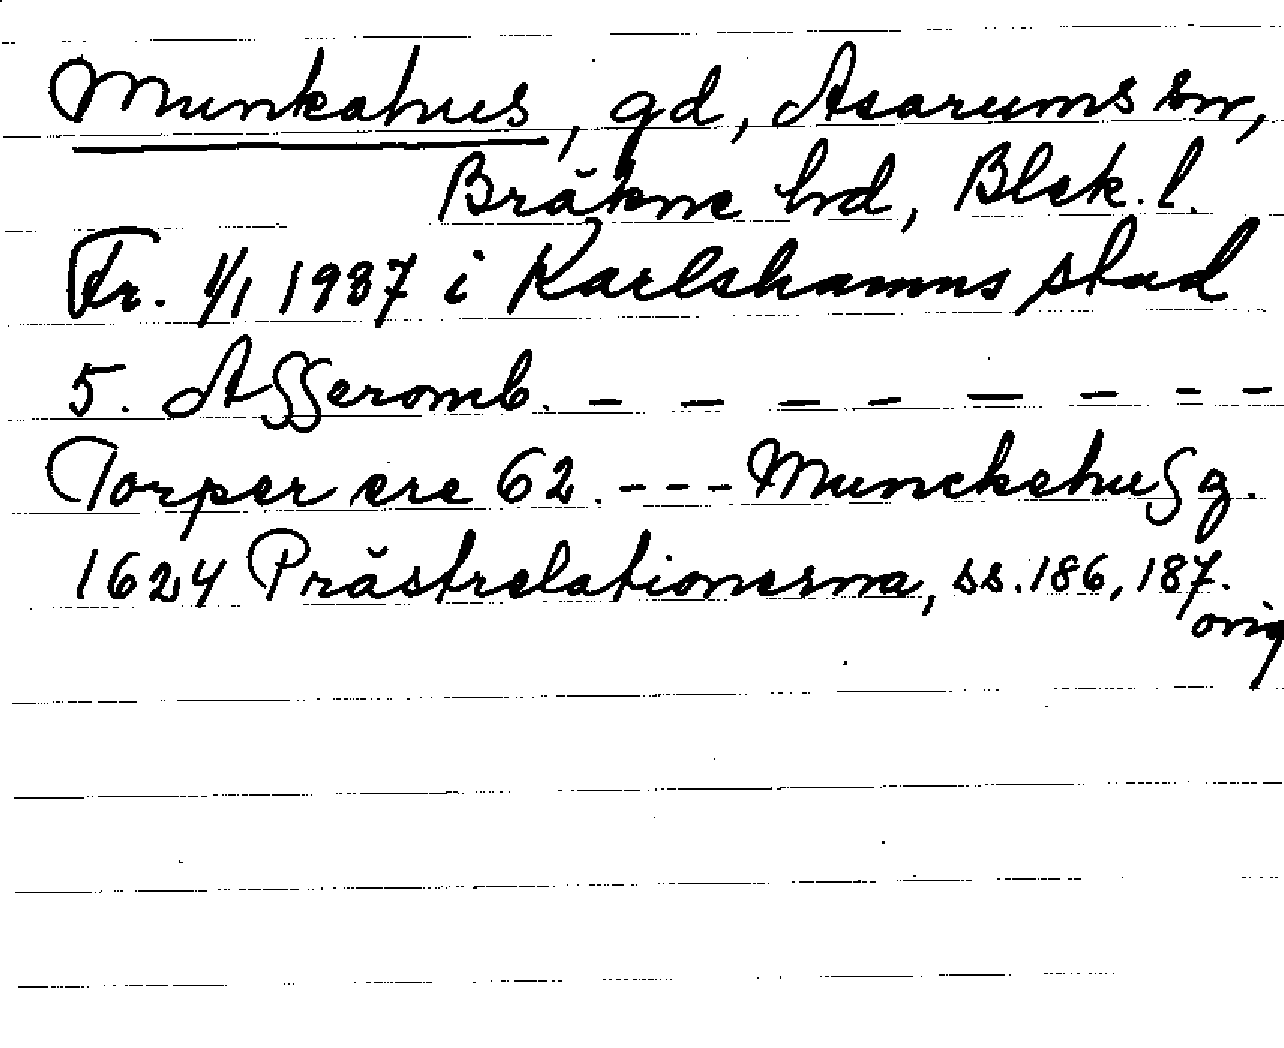 Munkahus, gd, Asarums sn,
Bräkne hd, Blek. l.
Fr. 1/1 1937 i Karlshamns stad
5. Asseromb. – – – – – – – –
Torper ere 62. - - - Munckehus g.
1624 Prästrelationerna, ss. 186, 187.
orig